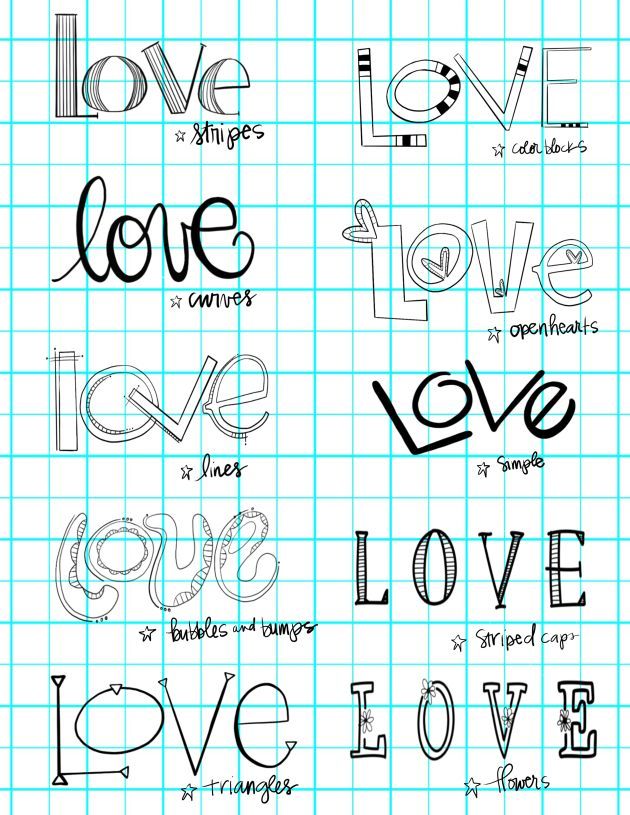 Love
☆ stripes
LOVE
☆ color blocks
love
☆ curves
LOVe
☆ open hearts
love
☆ lines
LOVe
☆ simple
LOVe
☆ bubbles and bumps
LOVE
☆ Striped caps
LOVe
☆ triangles
LOVE
☆ flowers